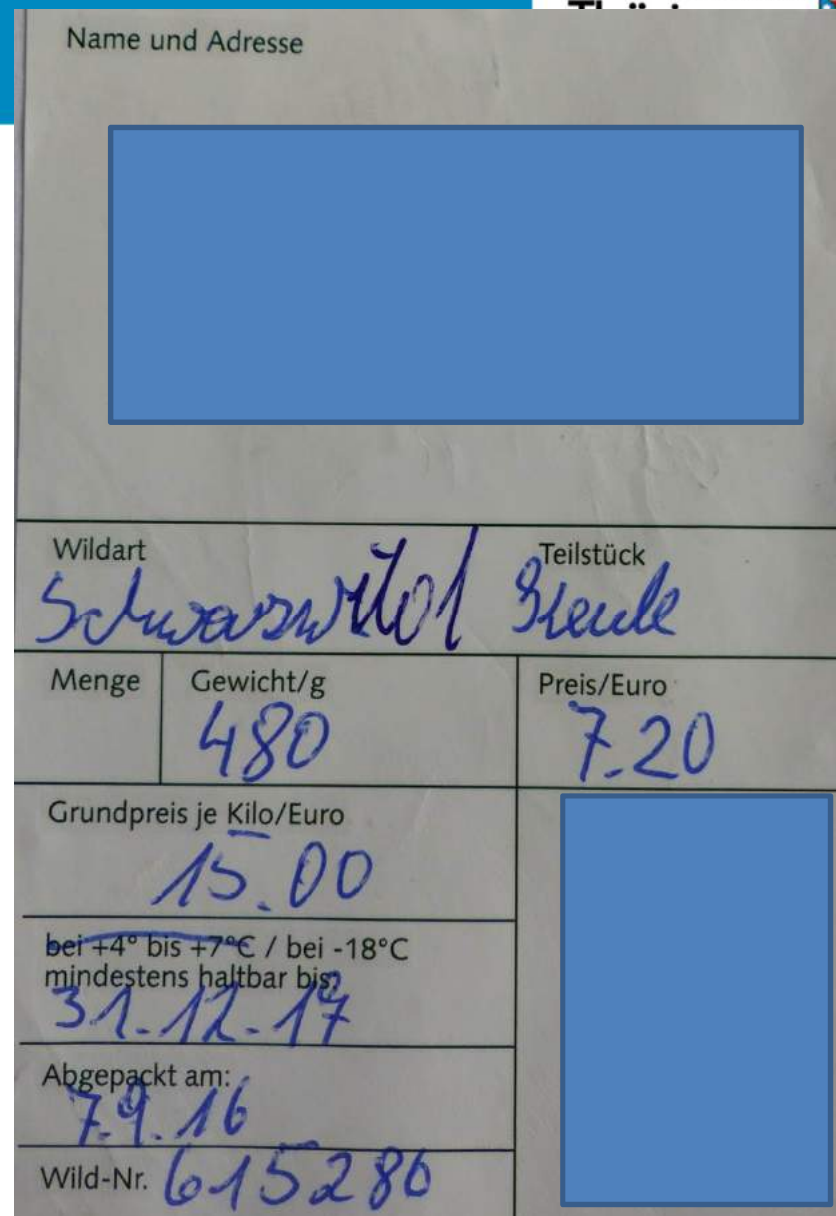 Name und Adresse
Wildart
Teilstück
Schwarzwild Keule
Menge
Gewicht/g
Preis/Euro
480
7.20
Grundpreis je Kilo/Euro
15.00
bei +4° bis +7°C / bei -18°C
mindestens haltbar bis:
31.12.17
Abgepackt am:
7.9.16
Wild-Nr. 615286